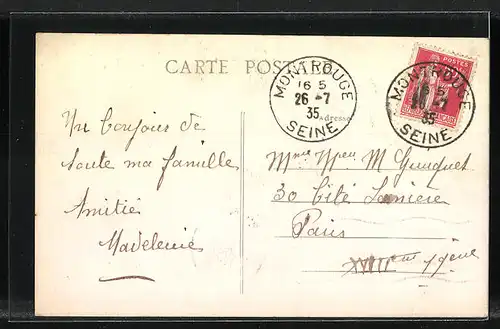 CARTE POSTALE
MONTROUGE
16 5
26 -7
35
SEINE
POSTES
MONTROUGE
16 5
26 -7
35
SEINE
Adresse
Un bonjour de
toute ma famille
Amitié
Madeleine
Mme Mlle M
30 Cité
Paris
XVIIIème 19ème